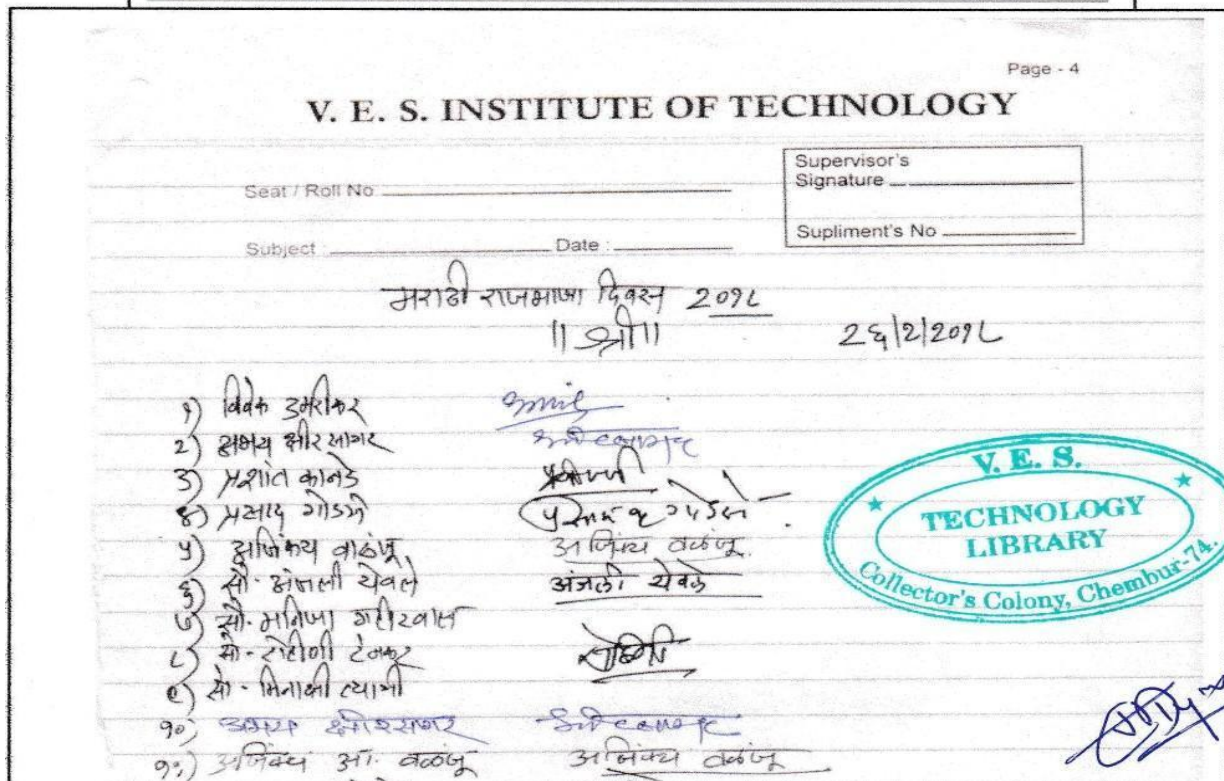 Page - 4
V. E. S. INSTITUTE OF TECHNOLOGY
Seat / Roll No
Supervisor's
Signature
Supliment's No
Subject : Date :
मराठी राजभाषा दिवस २०१८
॥ श्री ॥ २६/२/२०१८
१) विवेक उमरीकर
२) अभय क्षीरसागर
३) प्रशांत कानडे
४) प्रसाद गोडसे
५) अजिंक्य वाळंजू अजिंक्य वळंजू
६) सौ. अंजली येवले अंजली येवले
७) सौ.
८) सौ. रोहीणी टेनकर
९) सौ. मिनाक्षी त्यागी
१०) अभय क्षीरसागर
११) अजिंक्य अ. वळंजू अजिंक्य वळंजू
V. E. S.
TECHNOLOGY
LIBRARY
Collector's Colony, Chembur-74.